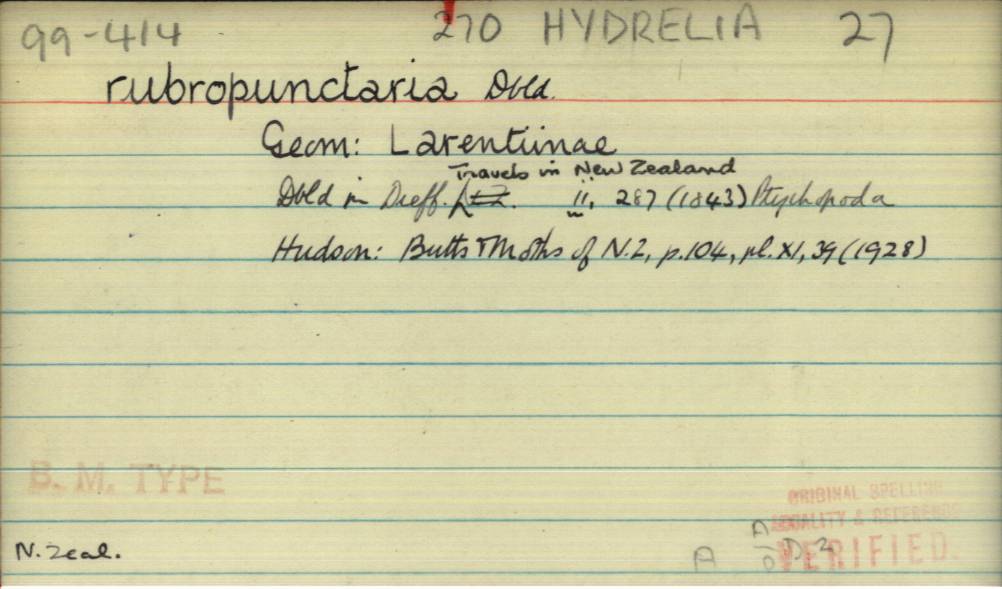 99-414 270 HYDRELIA 27
rubropunctaria Dbld.
Geom: Larentiinae
Travels in New Zealand
Dbld in Dieff. ii, 287 (1843) Ptychopoda
Hudson: Butts & Moths of N.Z, p.104, pl. XI, 39 (1928)
B. M. TYPE
ORIGINAL SPELLING
LOCALITY & REFERENCE
VERIFIED.
N. Zeal.
A